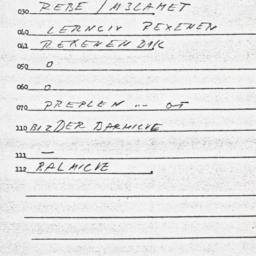 030 REBE / M3LAMET
040 LERNCIV PEXENEN
041 REKENEN
050 O
060 O
070 PREPLEN -- OT
110 BIZDER DARMICVE
111 —
112 BALMICVE